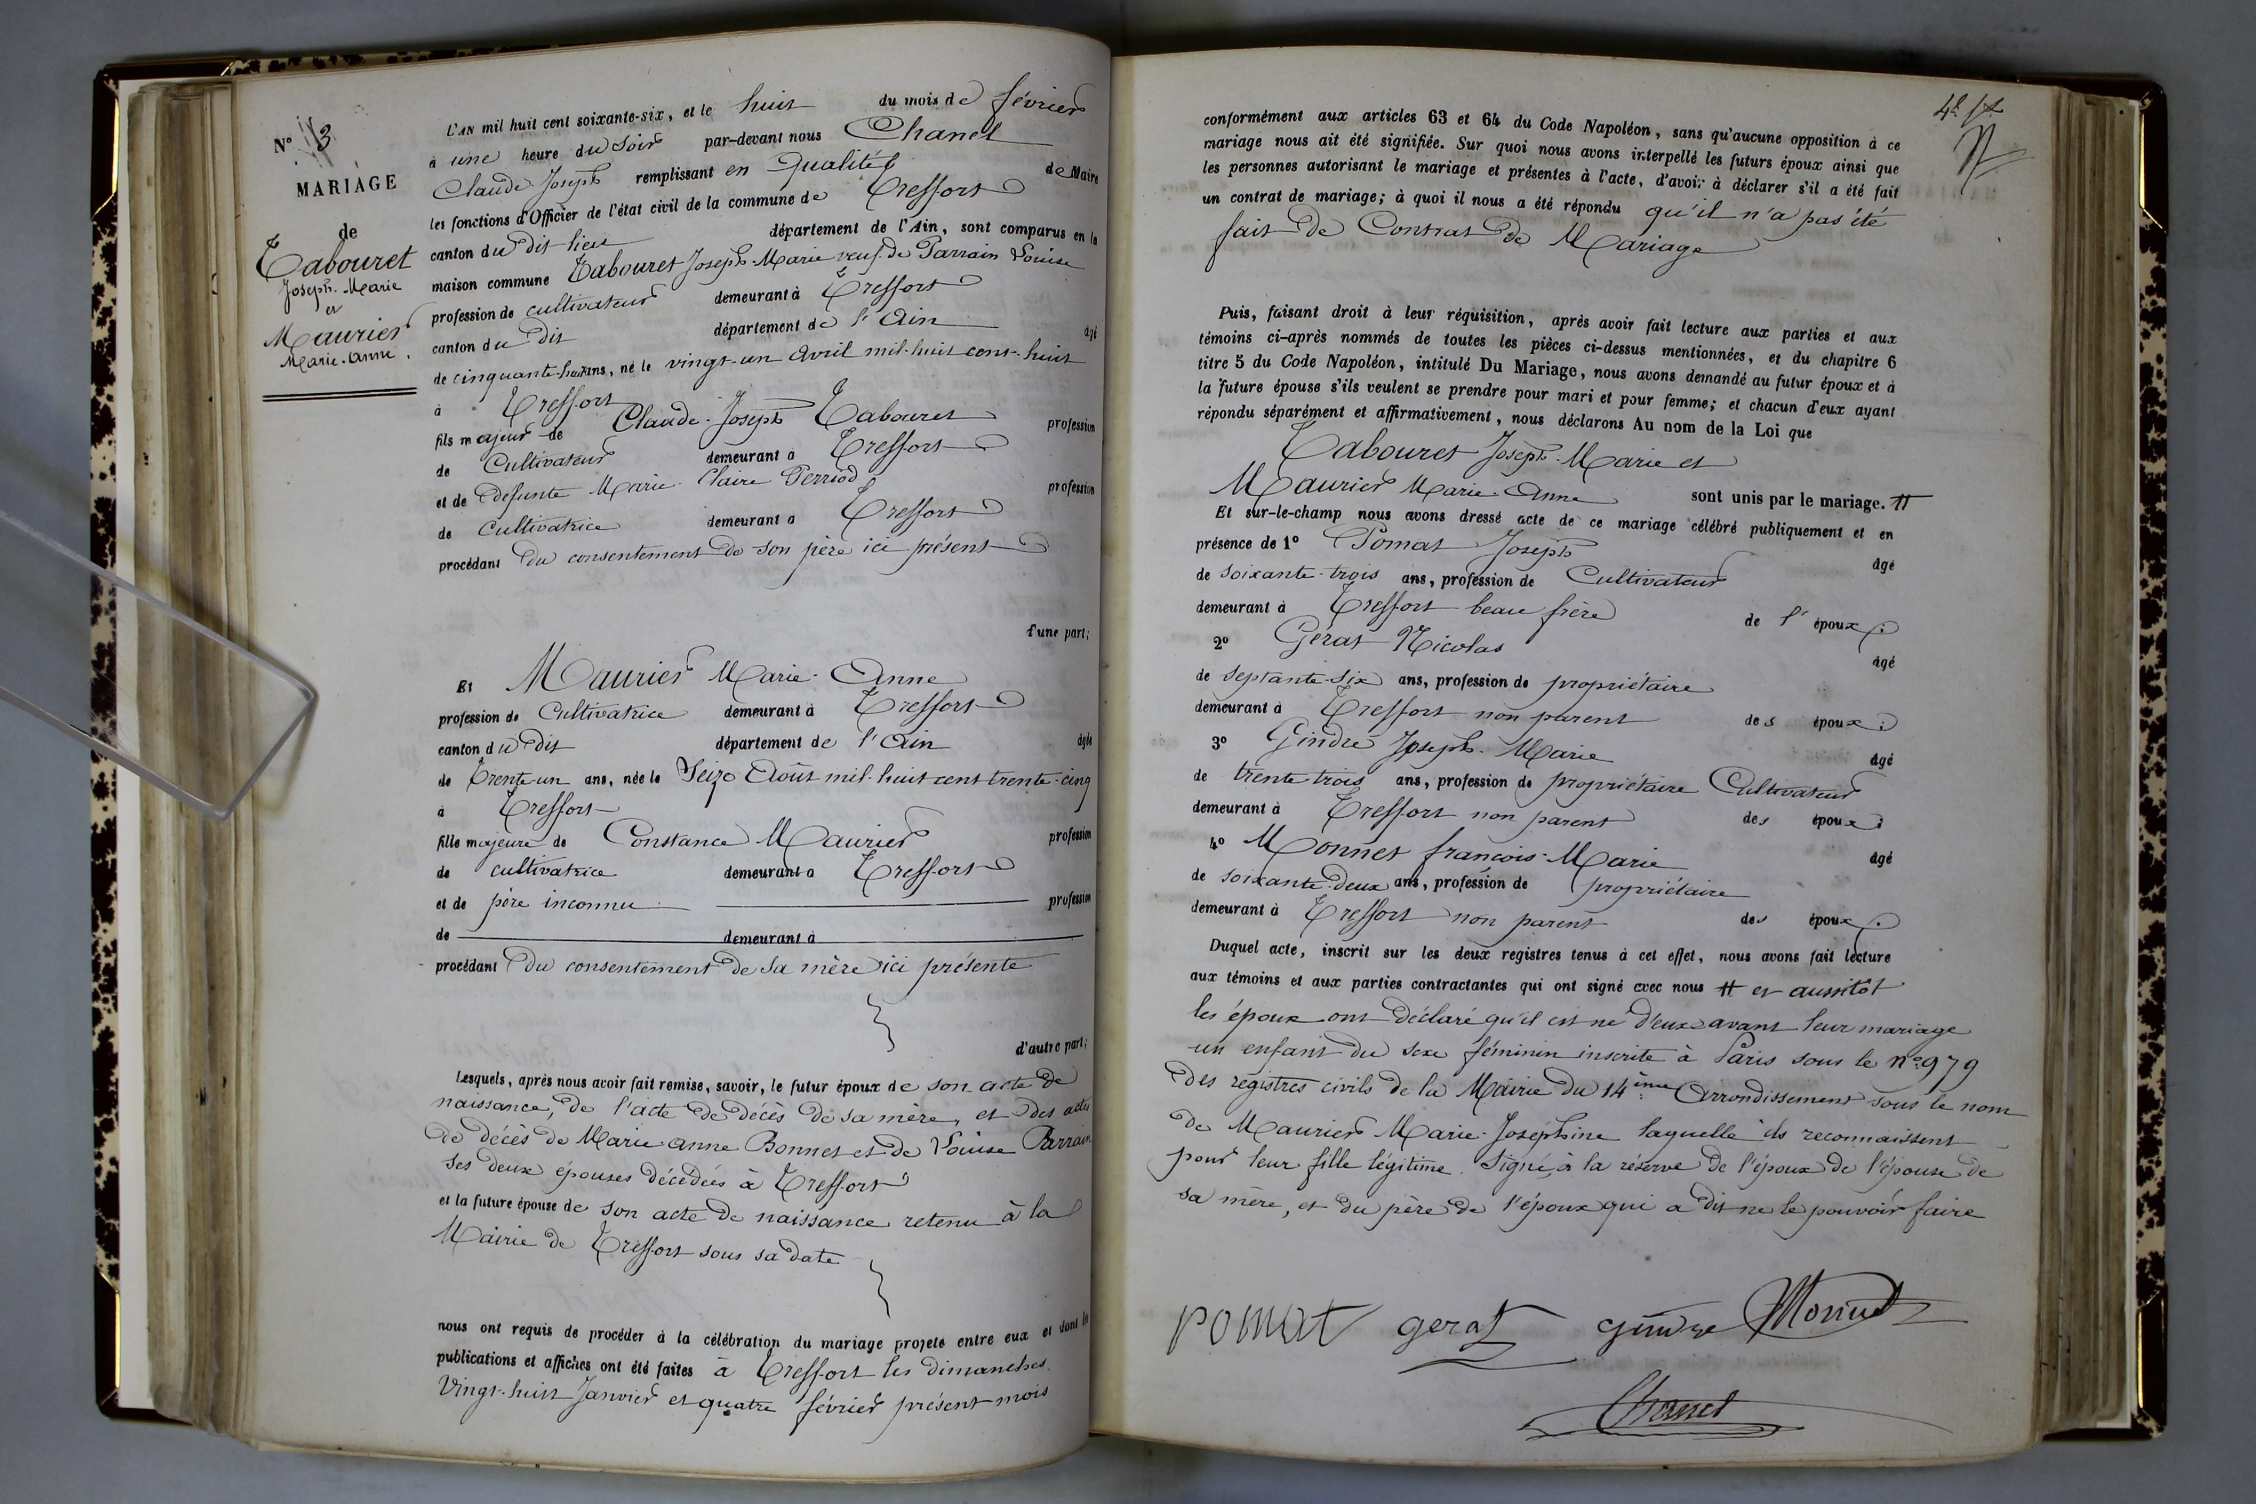 N° 3
MARIAGE
de
Tabouret
Joseph-Marie
et
Maurier
Marie-Anne.
L'AN mil huit cent soixante-six, et le huit du mois de février
à une heure du Soir par-devant nous Chanel
Claude Joseph remplissant en Qualité de Maire
les fonctions d'Officier de l'état civil de la commune de Treffort
canton du dit lieu département de l'Ain, sont comparus en la
maison commune Tabouret Joseph-Marie veuf de Parrain Louise
profession de cultivateur demeurant à Treffort
canton du dit département de l'Ain âgé
de cinquante-huit ans, né le vingt-un avril mil-huit-cent-huit
à Treffort
fils majeur de Claude-Joseph Tabouret profession
de Cultivateur demeurant à Treffort
et de défunte Marie-Claire Perriod profession
de Cultivatrice demeurant à Treffort
procédant du consentement de son père ici présent
d'une part;
Et Maurier Marie-Anne
profession de Cultivatrice demeurant à Treffort
canton du dit département de l'Ain âgée
de trente-un ans, née le Seize Août mil-huit-cent trente-cinq
à Treffort
fille majeure de Constance Maurier profession
de cultivatrice demeurant à Treffort
et de père inconnu profession
de demeurant à
procédant du consentement de sa mère ici présente
d'autre part;
Lesquels, après nous avoir fait remise, savoir, le futur époux de son acte de
naissance, de l'acte de décès de sa mère, et des actes
de décès de Marie-anne Bonnet et de Louise Parrain
ses deux épouses décédées à Treffort
et la future épouse de son acte de naissance retenu à la
Mairie de Treffort sous sa date
nous ont requis de procéder à la célébration du mariage projeté entre eux et dont les
publications et affiches ont été faites à Treffort les dimanches
Vingt-huit Janvier et quatre février présent mois
conformément aux articles 63 et 64 du Code Napoléon, sans qu'aucune opposition à ce
mariage nous ait été signifiée. Sur quoi nous avons interpellé les futurs époux ainsi que
les personnes autorisant le mariage et présentes à l'acte, d'avoir à déclarer s'il a été fait
un contrat de mariage; à quoi il nous a été répondu qu'il n'a pas été
fait de Contrat de Mariage
Puis, faisant droit à leur réquisition, après avoir fait lecture aux parties et aux
témoins ci-après nommés de toutes les pièces ci-dessus mentionnées, et du chapitre 6
titre 5 du Code Napoléon, intitulé Du Mariage, nous avons demandé au futur époux et à
la future épouse s'ils veulent se prendre pour mari et pour femme; et chacun d'eux ayant
répondu séparément et affirmativement, nous déclarons Au nom de la Loi que
Tabouret Joseph-Marie et
Maurier Marie-Anne sont unis par le mariage. #
Et sur-le-champ nous avons dressé acte de ce mariage célébré publiquement et en
présence de 1° Pomat Joseph âgé
de soixante-trois ans, profession de Cultivateur
demeurant à Treffort beau frère de l'époux;
2° Gérat Nicolas âgé
de septante-six ans, profession de propriétaire
demeurant à Treffort non parent des époux;
3° Gindre Joseph-Marie âgé
de trente trois ans, profession de propriétaire Cultivateur
demeurant à Treffort non parent des époux;
4° Monnet françois-Marie âgé
de soixante-deux ans, profession de propriétaire
demeurant à Treffort non parent des époux.
Duquel acte, inscrit sur les deux registres tenus à cet effet, nous avons fait lecture
aux témoins et aux parties contractantes qui ont signé avec nous # et aussitôt
les époux ont déclaré qu'il est né d'eux avant leur mariage
un enfant du sexe féminin inscrite à Paris sous le n° 979
des registres civils de la Mairie du 14ème Arrondissement sous le nom
de Maurier Marie-Joséphine laquelle ils reconnaissent
pour leur fille légitime. Signé, à la réserve de l'époux de l'épouse de
sa mère, et du père de l'époux qui a dit ne le pouvoir faire
pomat gerat gindre Monnet
Chanel